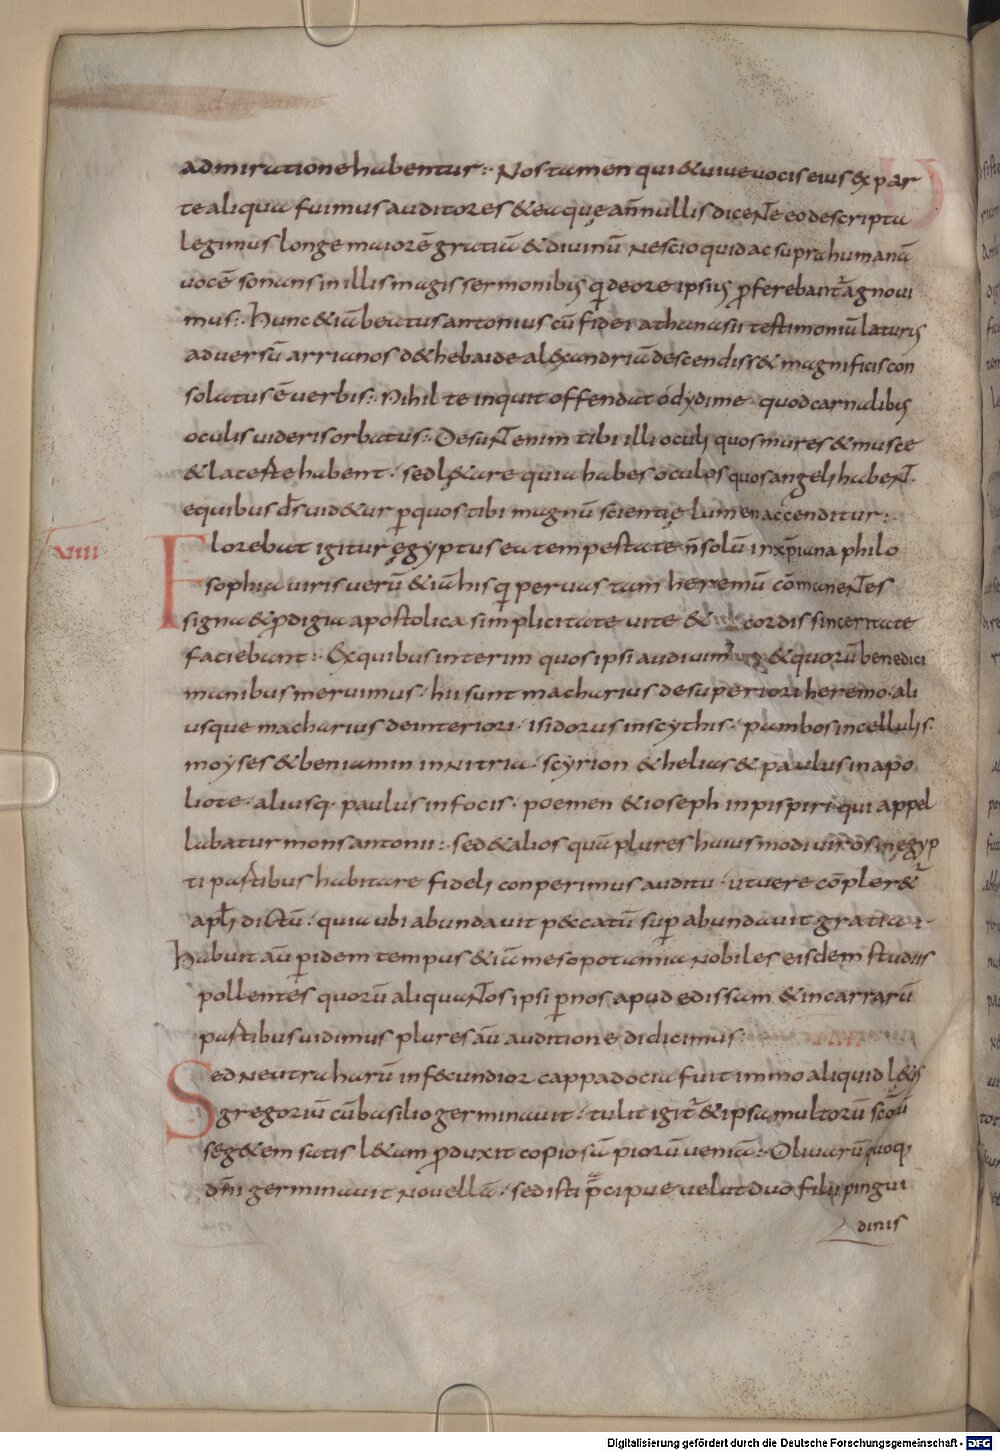 admirationehabentur:· Nostamen qui&uiuęuocis eius ex par
te aliqua fuimus auditores &eaquę an̄nullis diceNte eo descripta
legimus longe maiorē gratiā &diuinū Nescio quid ac supra humanā
uocē sonans in illis magis sermonibus, q̨ de ore ipsius ꝓferebant᷑ agnoui
mus:· Hunc &iā beatus antonius cū fidei athanasii testimoniū laturus
aduersū arrianos d&hebaide alexandriā descendiss& magnificis con
solatus ē uerbis:· Nihil te inquit offendat o dydime· quod carnalibus
oculis uideris orbatus:· DesuNt enim tibi illi oculi quos mures &muscę
&lacerte habent· sed l&are quia habes oculos quos angeli habeNt·
e quibus d̄s uid&ur ꝑ quos tibi magnū scientię lumen accenditur:·
VIIII
Florebat igitur ęgyptus ea tempestate n̄ solū in xp̄iana philo
sophia uiris uerū &iā his q̨ per uastam heremū cōmaneNtes
signa &ꝓdigia apostolica simplicitate uite & cordis sinceritate
faciebant:· Ex quibus interim quos ipsi audiuimus &quorū benedici
manibus meruimus· hii sunt macharius de superiori heremo· ali
usque macharius de interiori· isidorus in scythis· pambos in cellulis·
moyses &beniamin in Nitria· scyrion &helias &paulus in apo
liote· aliusq· paulus in focis· poemen &ioseph in pispiri qui appel
labatur mons antonii:· sed &alios quā plures huiusmodi uiros in ęgyp
ti partibus habitare fideli conperimus auditu· ut uere cōpler&᷑
apl̄i dictū· quia ubi abundauit p&catū suꝑabundauit gratia:·
Habuit aū ꝑ idem tempus &iā mesopotamia Nobiles eisdem studiis
pollentes quorū aliquaNtos ipsi ꝑ nos apud edissam &in carrarū
partibus uidimus plures aū auditione didicimus:·
Sed Neutra harū infecundior cappadocia fuit immo aliquid l&ius
gregoriū cū basilio germinauit· tulit igit᷑ &ipsa multorū sc̄orū
seg&em satis l&am ꝓduxit copiosā piorū ueniā:· Oliuarū quoq,
dn̄i germinauit Nouellā· sed isti p̄cipue uelut duo filii pingui
dinis
Digitalisierung gefördert durch die Deutsche Forschungsgemeinschaft - DFG